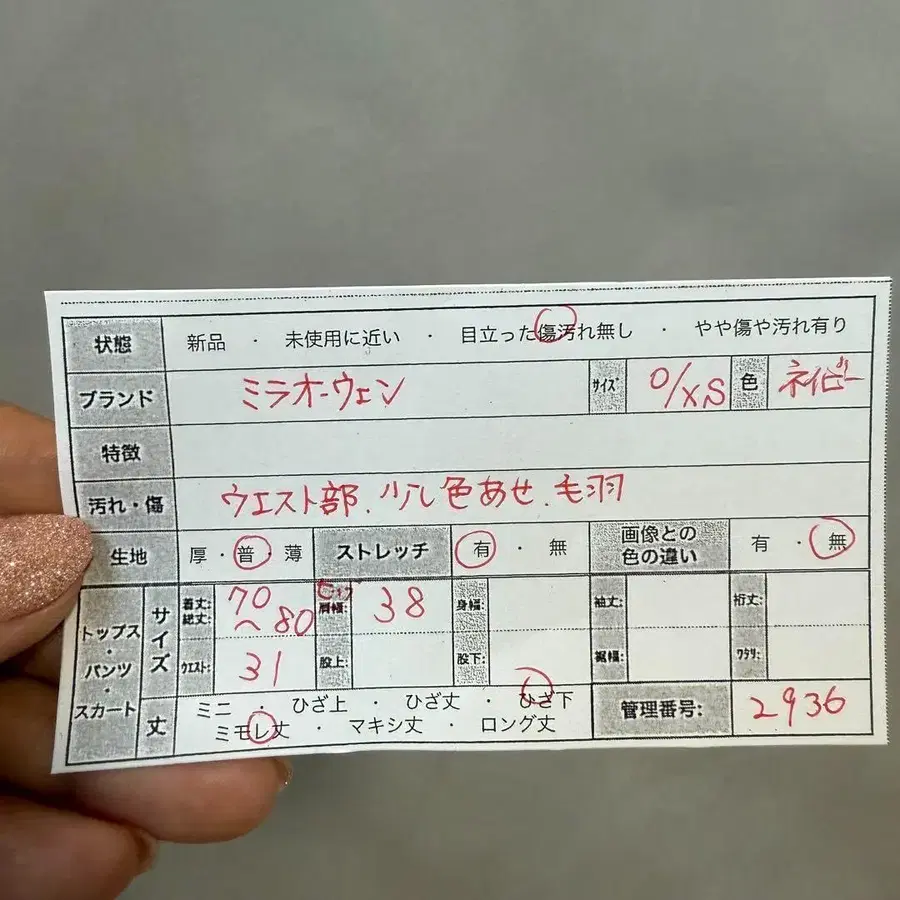 状態 新品 ・ 未使用に近い ・ 目立った傷汚れ無し ・ やや傷や汚れ有り
ブランド ミラオーウェン サイズ 0/XS 色 ネイビー
特徴
汚れ・傷 ウエスト部、少し色あせ、毛羽
生地 厚・普・薄 ストレッチ 有 ・ 無 画像との色の違い 有 ・ 無
トップス・パンツ・スカート サイズ 着丈: 総丈: 70〜80 肩幅: 38 身幅: 袖丈: 裄丈:
ウエスト: 31 股上: 股下: 裾幅: ワタリ:
丈 ミニ ・ ひざ上 ・ ひざ丈 ・ ひざ下
ミモレ丈 ・ マキシ丈 ・ ロング丈
管理番号: 2936